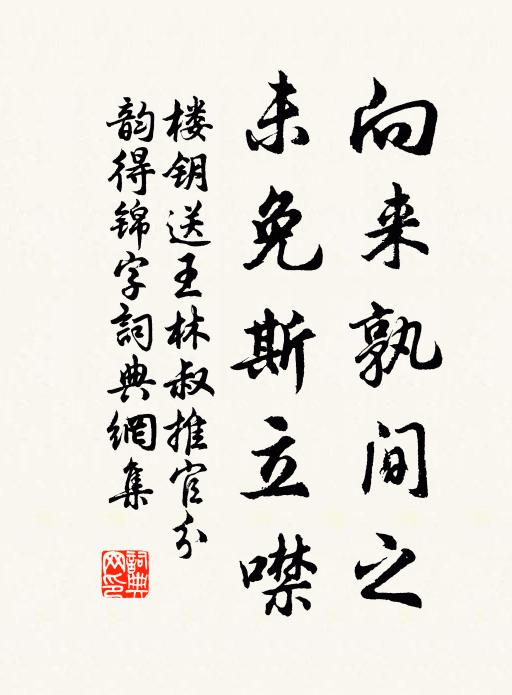 向来孰间之
未免斯立噤
楼钥送王林叔推官分
韵得锦字詞典網集
詞典网印